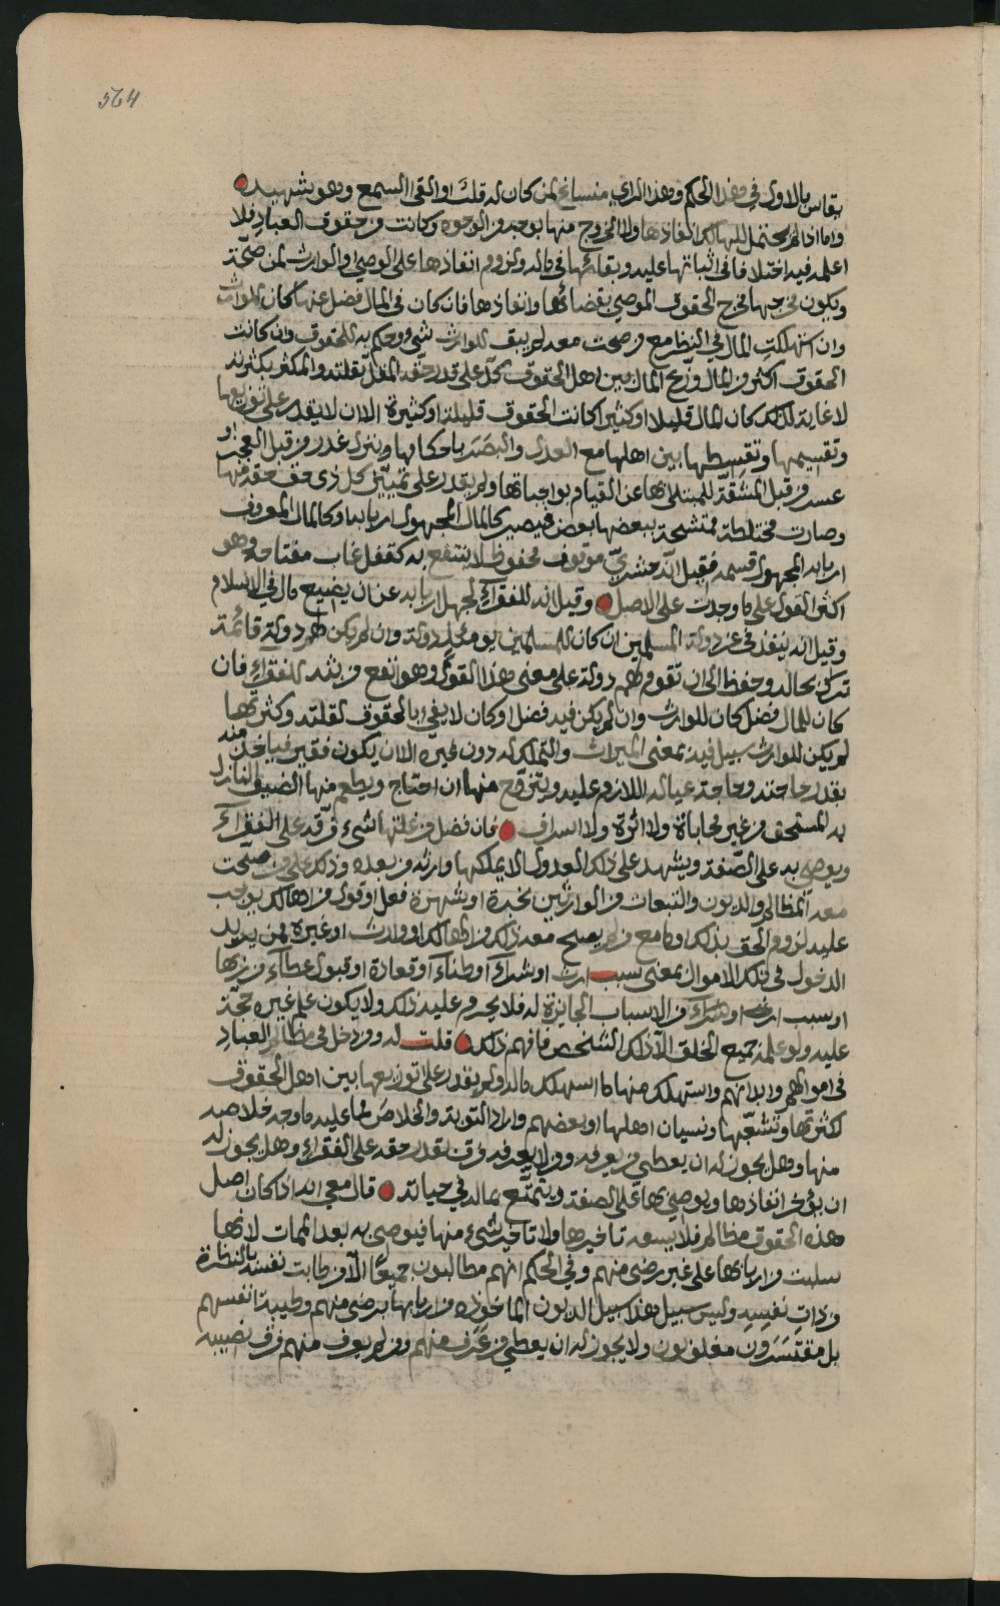 564
يقاس بالاول في هذا الحكم وهذا الراي منساغ لمن كان له قلب او القى السمع وهو شهيد
واما اذا لم يحتمل للهالك انفاذها ولا الخروج منها بوجه من الوجوه وكانت من حقوق العباد فلا
اعلم فيه اختلافا في اثباتها عليه وبقائها في ماله ولزوم انفاذها على الوصي والوارث لمن صحّت
ويكون في حقوق الموصي بقضائها وانفاذها فان كان في المال فضل عنها كان للوارث
وان استهلكت المال في النظر مع من صحت معه لم يبق للوارث شيء وحكم به للحقوق وان كانت
الحقوق اكثر من المال وزع المال بين اهل الحقوق كلّ على قدر حقه المقلّ بقلته والمكثر بكثرته
لا غاية لذلك كان المال قليلا او كثيرا كانت الحقوق قليلة او كثيرة الا ان لا يقدر على توزيعها
وتقسيمها وتقسيطها بين اهلها مع العدل والبصر باحكامها وينزل عذر من قبل العجز او
عسر من قبل المشقّة للمبتلى بها عن القيام بواجباتها ولم يقدر على تمييز كل ذي حق حقه منها
وصارت مختلطة بعضها ببعض فيصير كالمال المجهول اربابه او كالمال المعروف
اربابه المجهول قسمه فقيل انّه حشريّ موقوف محفوظ لا ينتفع به كقفل غاب مفتاحه وهو
اكثر القول على ما وجدت على الاصل وقيل انه للفقراء لجهل اربابه عن ان يضيع مال في الاسلام
وقيل انه ينفذ في عز دولة المسلمين ان كان للمسلمين يومئذ دولة وان لم يكن لهم دولة قائمة
ترك بحاله وحفظ الى ان تقوم لهم دولة على معنى هذا القول وهو انفع من للفقراء فان
كان للمال فضل كان للوارث وان لم يكن فيه فضل او كان لا يفي بالحقوق لقلته وكثرتها
لم يكن للوارث سبيل فيه بمعنى الميراث والتملك له دون غيره الا ان يكون فقير فياخذ منه
بقدر حاجته وحاجة عياله اللازم عليه ويتزوج منها ان احتاج ويطعم منها الضيف النازل
به المستحق من غير محاباة ولا اثرة ولا اسراف فان فضل من غلتها شيء فرقه على الفقراء
ويوصي به على الصّفة ويشهد على ذلك العدول لا يملكها وارثه من بعده وذلك على من صحت
معه المظالم والديون والتبعات من الوارثين بخبرة او شهرة فعل او قول من الهالك يوجب
عليه لزوم الحق بذلك او مع من لم يصح معه ذلك من الهالك او وارث او غيره ممن يريد
الدخول في تلك الاموال بمعنى سبب ارث او شراء او قعادة او قبول عطاء من ربها
او سبب ارث او شراء من الاسباب الجائزة له فلا يحرم عليه ذلك ولا يكون علم غيره حجّة
عليه ولو علمه جميع الخلق الّا ذلك الشخص فافهم ذلك قلت له ومن دخل في مظالم العباد
في اموالهم وابدانهم واستهلك منها ما استهلك ماله ولم يقدر على توزيعها بين اهل الحقوق
لكثرتها وتشعّبها ونسيان اهلها او بعضهم واراد التوبة والخلاص لما عليه ما وجه خلاصه
منها وهل يجوز له ان يعطي من يعرفه ومن لا يعرفه فرق بقدر حقه على الفقراء وهل يجوز له
ان يؤخر انفاذها ويوصي بها على الصفة ويتمتّع بماله في حياته قال معي انه اذا كان اصل
هذه الحقوق مظالم فلا يسعه تاخيرها ولا تاخير شيء منها فيوصي به بعد الممات لانها
سلبت من اربابها على غير رضى منهم وفي الحكم انهم مطالبون جميعًا الّا من طابت نفسه بالنظرة
من ذات نفسه وليس سبيل هذا سبيل الديون الماخوذة من اربابها برضى منهم وطيبة انفسهم
بل مقتسرون مغلوبون ولا يجوز له ان يعطي من عرف منهم ومن لم يعرف منهم فرق نصيبه